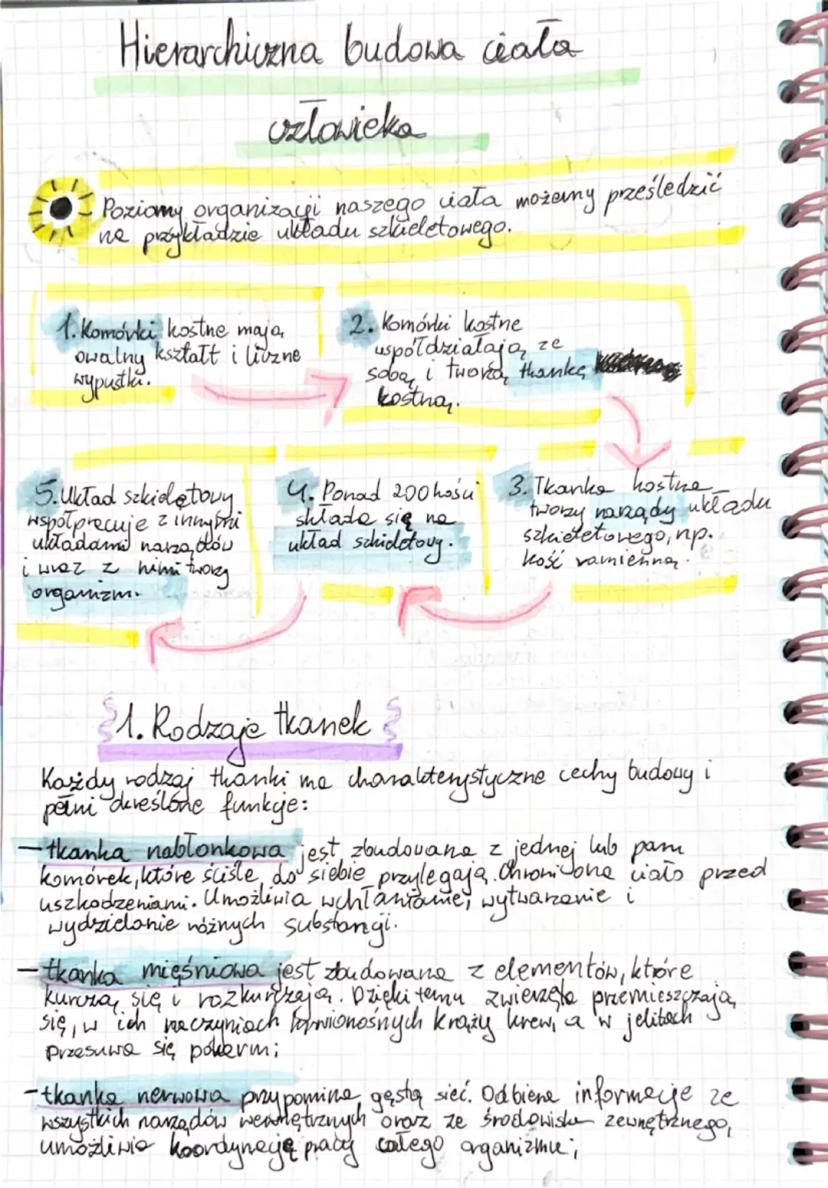 Hierarchiczna budowa ciała
człowieka
Poziomy organizacji naszego ciała możemy prześledzić
na przykładzie układu szkieletowego.
1. Komórki kostne mają
owalny kształt i liczne
wypustki.
2. Komórki kostne
współdziałają ze
sobą i tworzą tkankę
kostną.
3. Tkanka kostna
tworzy narządy układu
szkieletowego, np.
kość ramienna.
4. Ponad 200 kości
składa się na
układ szkieletowy.
5. Układ szkieletowy
współpracuje z innymi
układami narządów
i wraz z nimi tworzy
organizm.
1. Rodzaje tkanek
Każdy rodzaj tkanki ma charakterystyczne cechy budowy i
pełni określone funkcje:
- tkanka nabłonkowa jest zbudowana z jednej lub paru
komórek, które ściśle do siebie przylegają. Chroni ona ciało przed
uszkodzeniami. Umożliwia wchłanianie, wytwarzanie i
wydzielanie różnych substancji.
- tkanka mięśniowa jest zbudowana z elementów, które
kurczą się i rozkurczają. Dzięki temu zwierzęta przemieszczają
się, w ich naczyniach krwionośnych krąży krew, a w jelitach
przesuwa się pokarm;
- tkanka nerwowa przypomina gęstą sieć. Odbiera informacje ze
wszystkich narządów wewnętrznych oraz ze środowiska zewnętrznego,
umożliwia koordynację pracy całego organizmu;